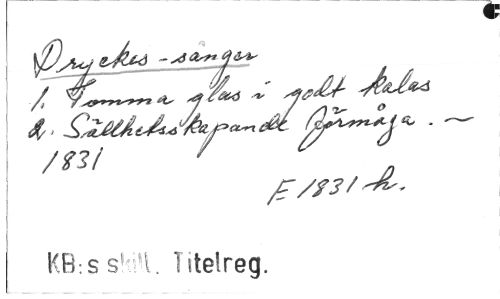 Dryckes-sånger
1. Tomma glas i godt kalas
2. Sällhetsskapande förmåga. ~
1831
E 1831 h.
KB:s skill. Titelreg.